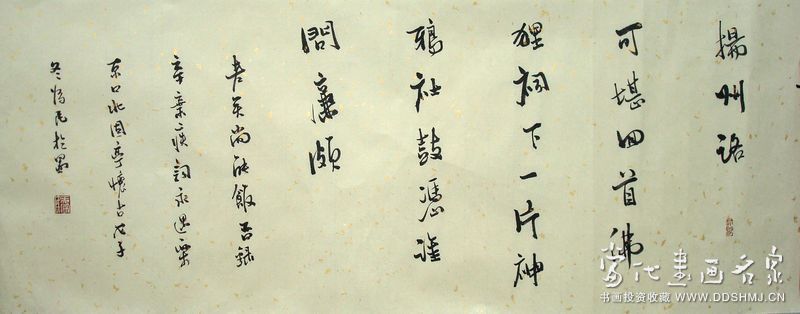 揚州路
可堪回首佛
狸祠下一片神
鴉社鼓憑誰
問廉頗
老矣尚能飯否錄
辛棄疾詞永遇樂
京口北固亭懷古戊子
冬於蜀
當代書画名家
书画投资收藏 WWW.DDSHMJ.CN